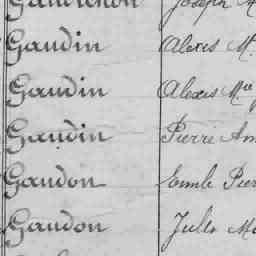 Gaudichon Joseph
Gaudin Alexis M.
Gaudin Alexis Mie
Gaudin Pierre Am
Gaudon Emile Pier
Gaudon Jules Ma